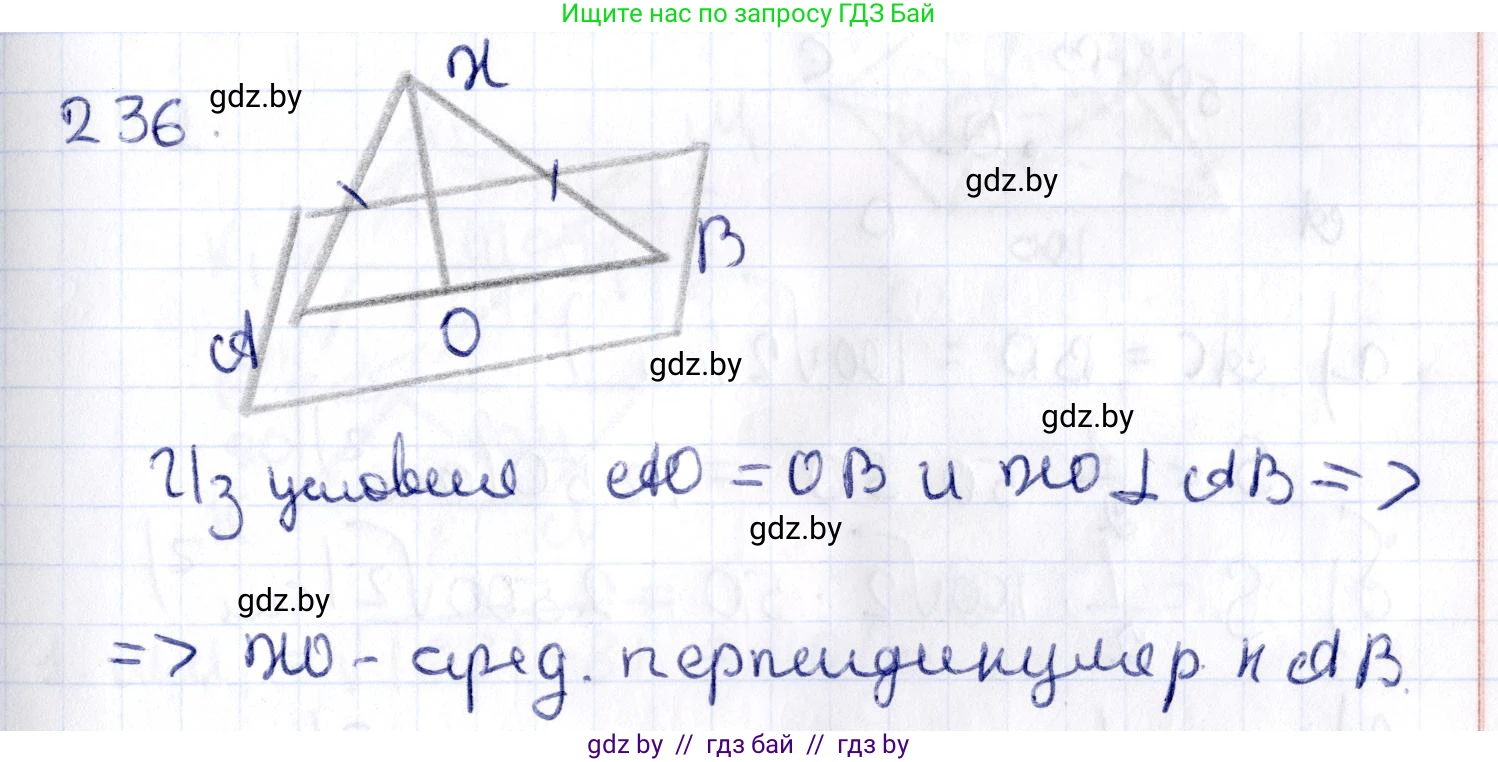 Ищите нас по запросу ГДЗ Бай
236.
gdz.by
X
gdz.by
B
A
O
gdz.by
gdz.by
Из условия AO = OB и XO ⊥ AB =>
gdz.by
gdz.by
=> XO - сред. перпендикуляр к AB.
gdz.by // гдз бай // гдз by